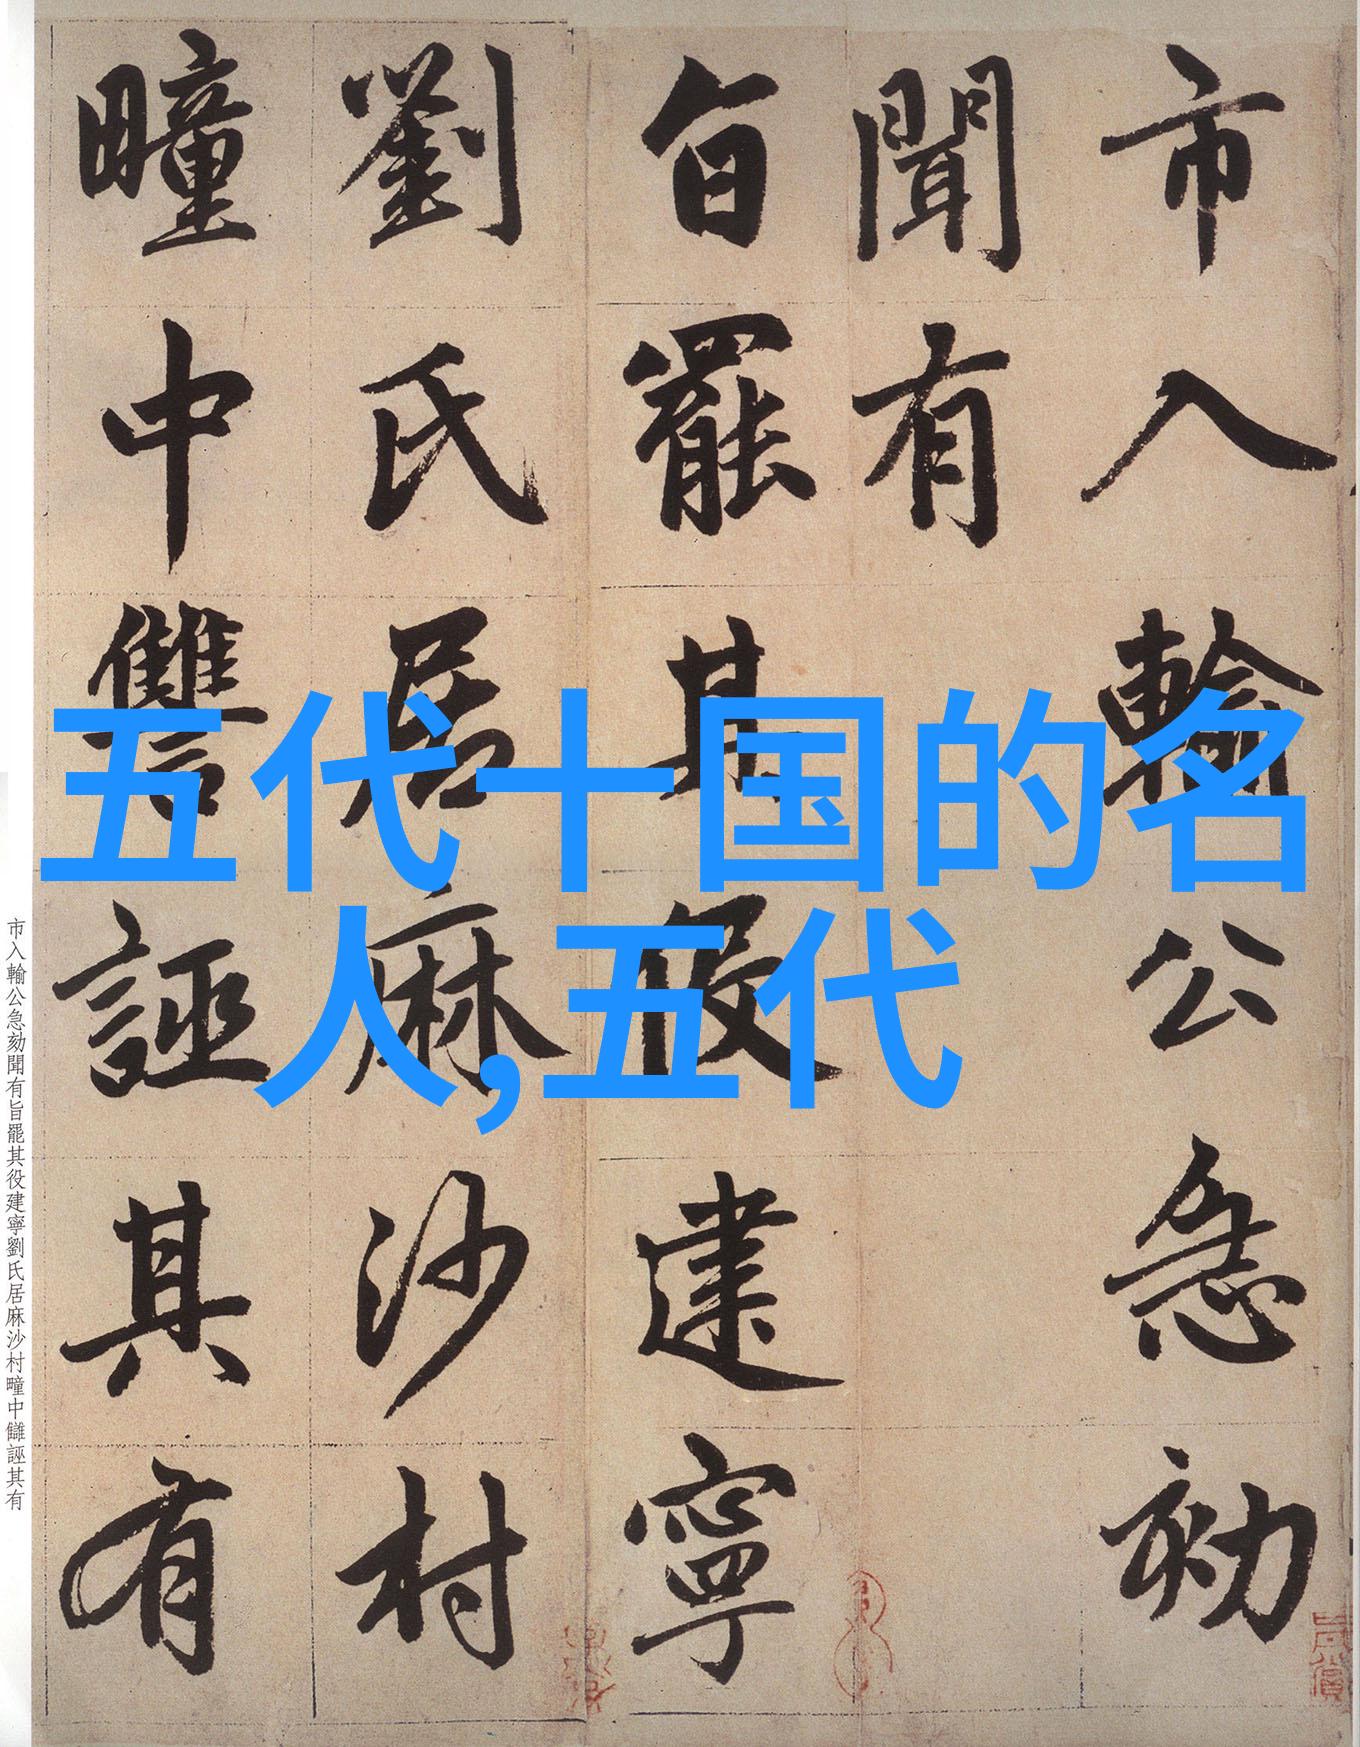 市入輸公急劾
聞有
旨罷其役建寧
劉氏居麻沙村
疃中讐誣其有
五代十国的名
人,五代
市入輸公急劾聞有旨罷其役建寧劉氏居麻沙村疃中讎誣其有